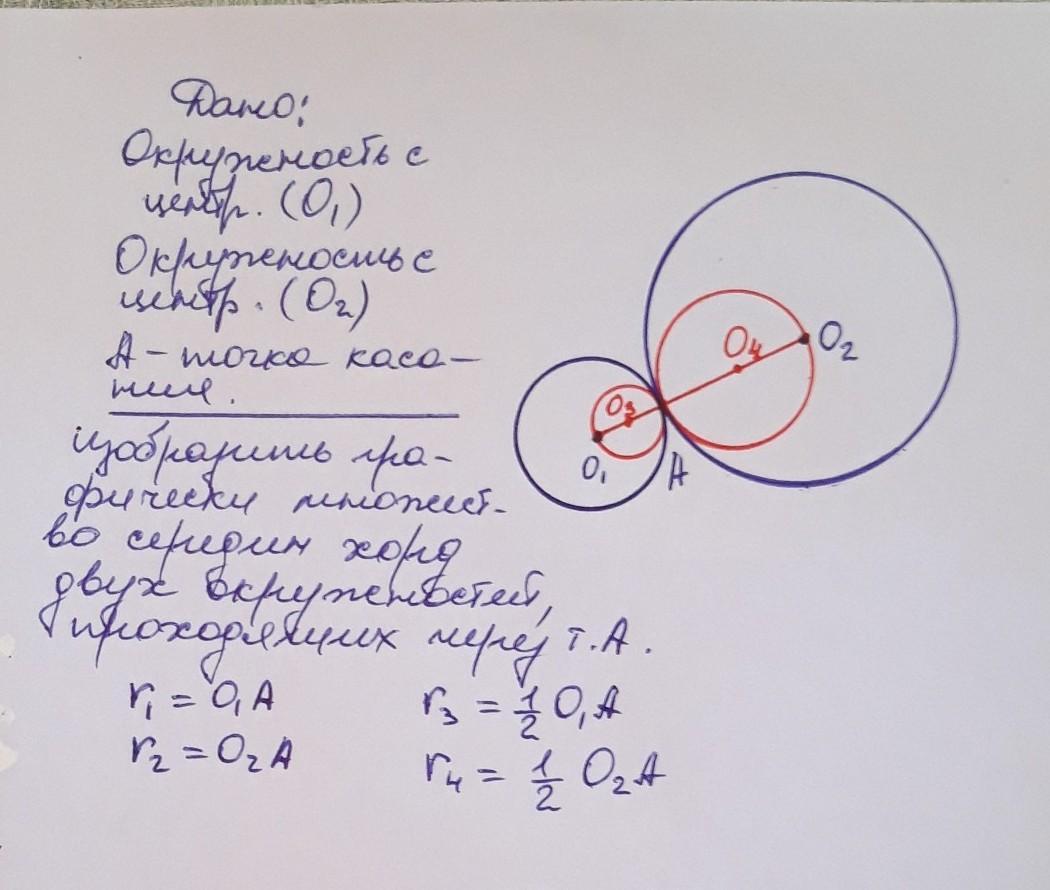 Дано:
Окружность с
центр. (O₁)
Окружность с
центр. (O₂)
А – точка каса–
ния.
Изобразить гра–
фически множест-
во середин хорд
двух окружностей,
проходящих через т.А.
r₁ = O₁A
r₃ = 1/2 O₁A
r₂ = O₂A
r₄ = 1/2 O₂A
O₄
O₂
O₃
O₁
A